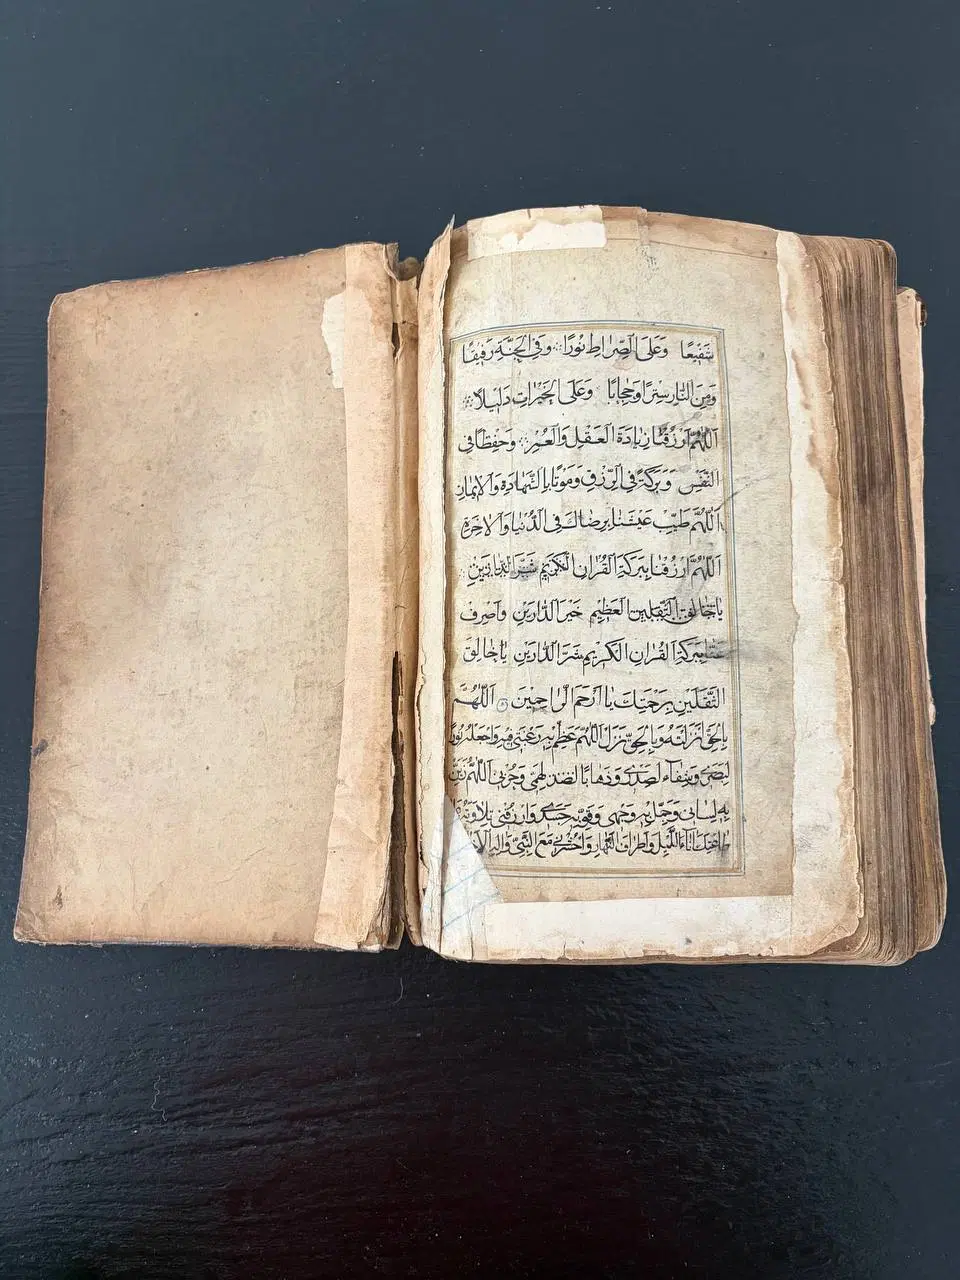 شَفِيعًا وَعَلَى الصِّرَاطِ نُورًا وَفِي الْجَنَّةِ رَفِيقًا
وَمِنَ النَّارِ سِتْرًا وَحِجَابًا وَعَلَى الْخَيْرَاتِ دَلِيلًا
اَللّٰهُمَّ ارْزُقْنَا زِيَادَةَ الْعَقْلِ وَالْعُمْرِ وَحِفْظًا فِي
النَّفْسِ وَبَرَكَةً فِي الرِّزْقِ وَمَوْتًا بِالشَّهَادَةِ وَالْاِيمَانِ
اَللّٰهُمَّ طَيِّبْ عَيْشَنَا بِرِضَاكَ فِي الدُّنْيَا وَالْاٰخِرَةِ
اَللّٰهُمَّ ارْزُقْنَا بِبَرَكَةِ الْقُرْاٰنِ الْكَرِيمِ
يَا خَالِقَ الثَّقَلَيْنِ الْعَظِيمِ خَيْرَ الدَّارَيْنِ وَاصْرِفْ
عَنَّا بِبَرَكَةِ الْقُرْاٰنِ الْكَرِيمِ شَرَّ الدَّارَيْنِ يَا خَالِقَ
الثَّقَلَيْنِ بِرَحْمَتِكَ يَا اَرْحَمَ الرَّاحِمِينَ اَللّٰهُمَّ
بِالْحَقِّ اَنْزَلْتَهُ وَبِالْحَقِّ نَزَلَ اَللّٰهُمَّ عَظِّمْ رَغْبَتِي فِيهِ وَاجْعَلْهُ نُورًا
لِبَصَرِي وَشِفَاءً لِصَدْرِي وَذَهَابًا لِهَمِّي وَحُزْنِي اَللّٰهُمَّ زَيِّنْ
بِهِ لِسَانِي وَجَمِّلْ بِهِ وَجْهِي وَقَوِّ بِهِ جَسَدِي وَارْزُقْنِي تِلَاوَتَهُ
طَاعَتِكَ اٰنَاءَ اللَّيْلِ وَاَطْرَافَ النَّهَارِ وَاحْشُرْنِي مَعَ النَّبِيِّ وَاٰلِهِ